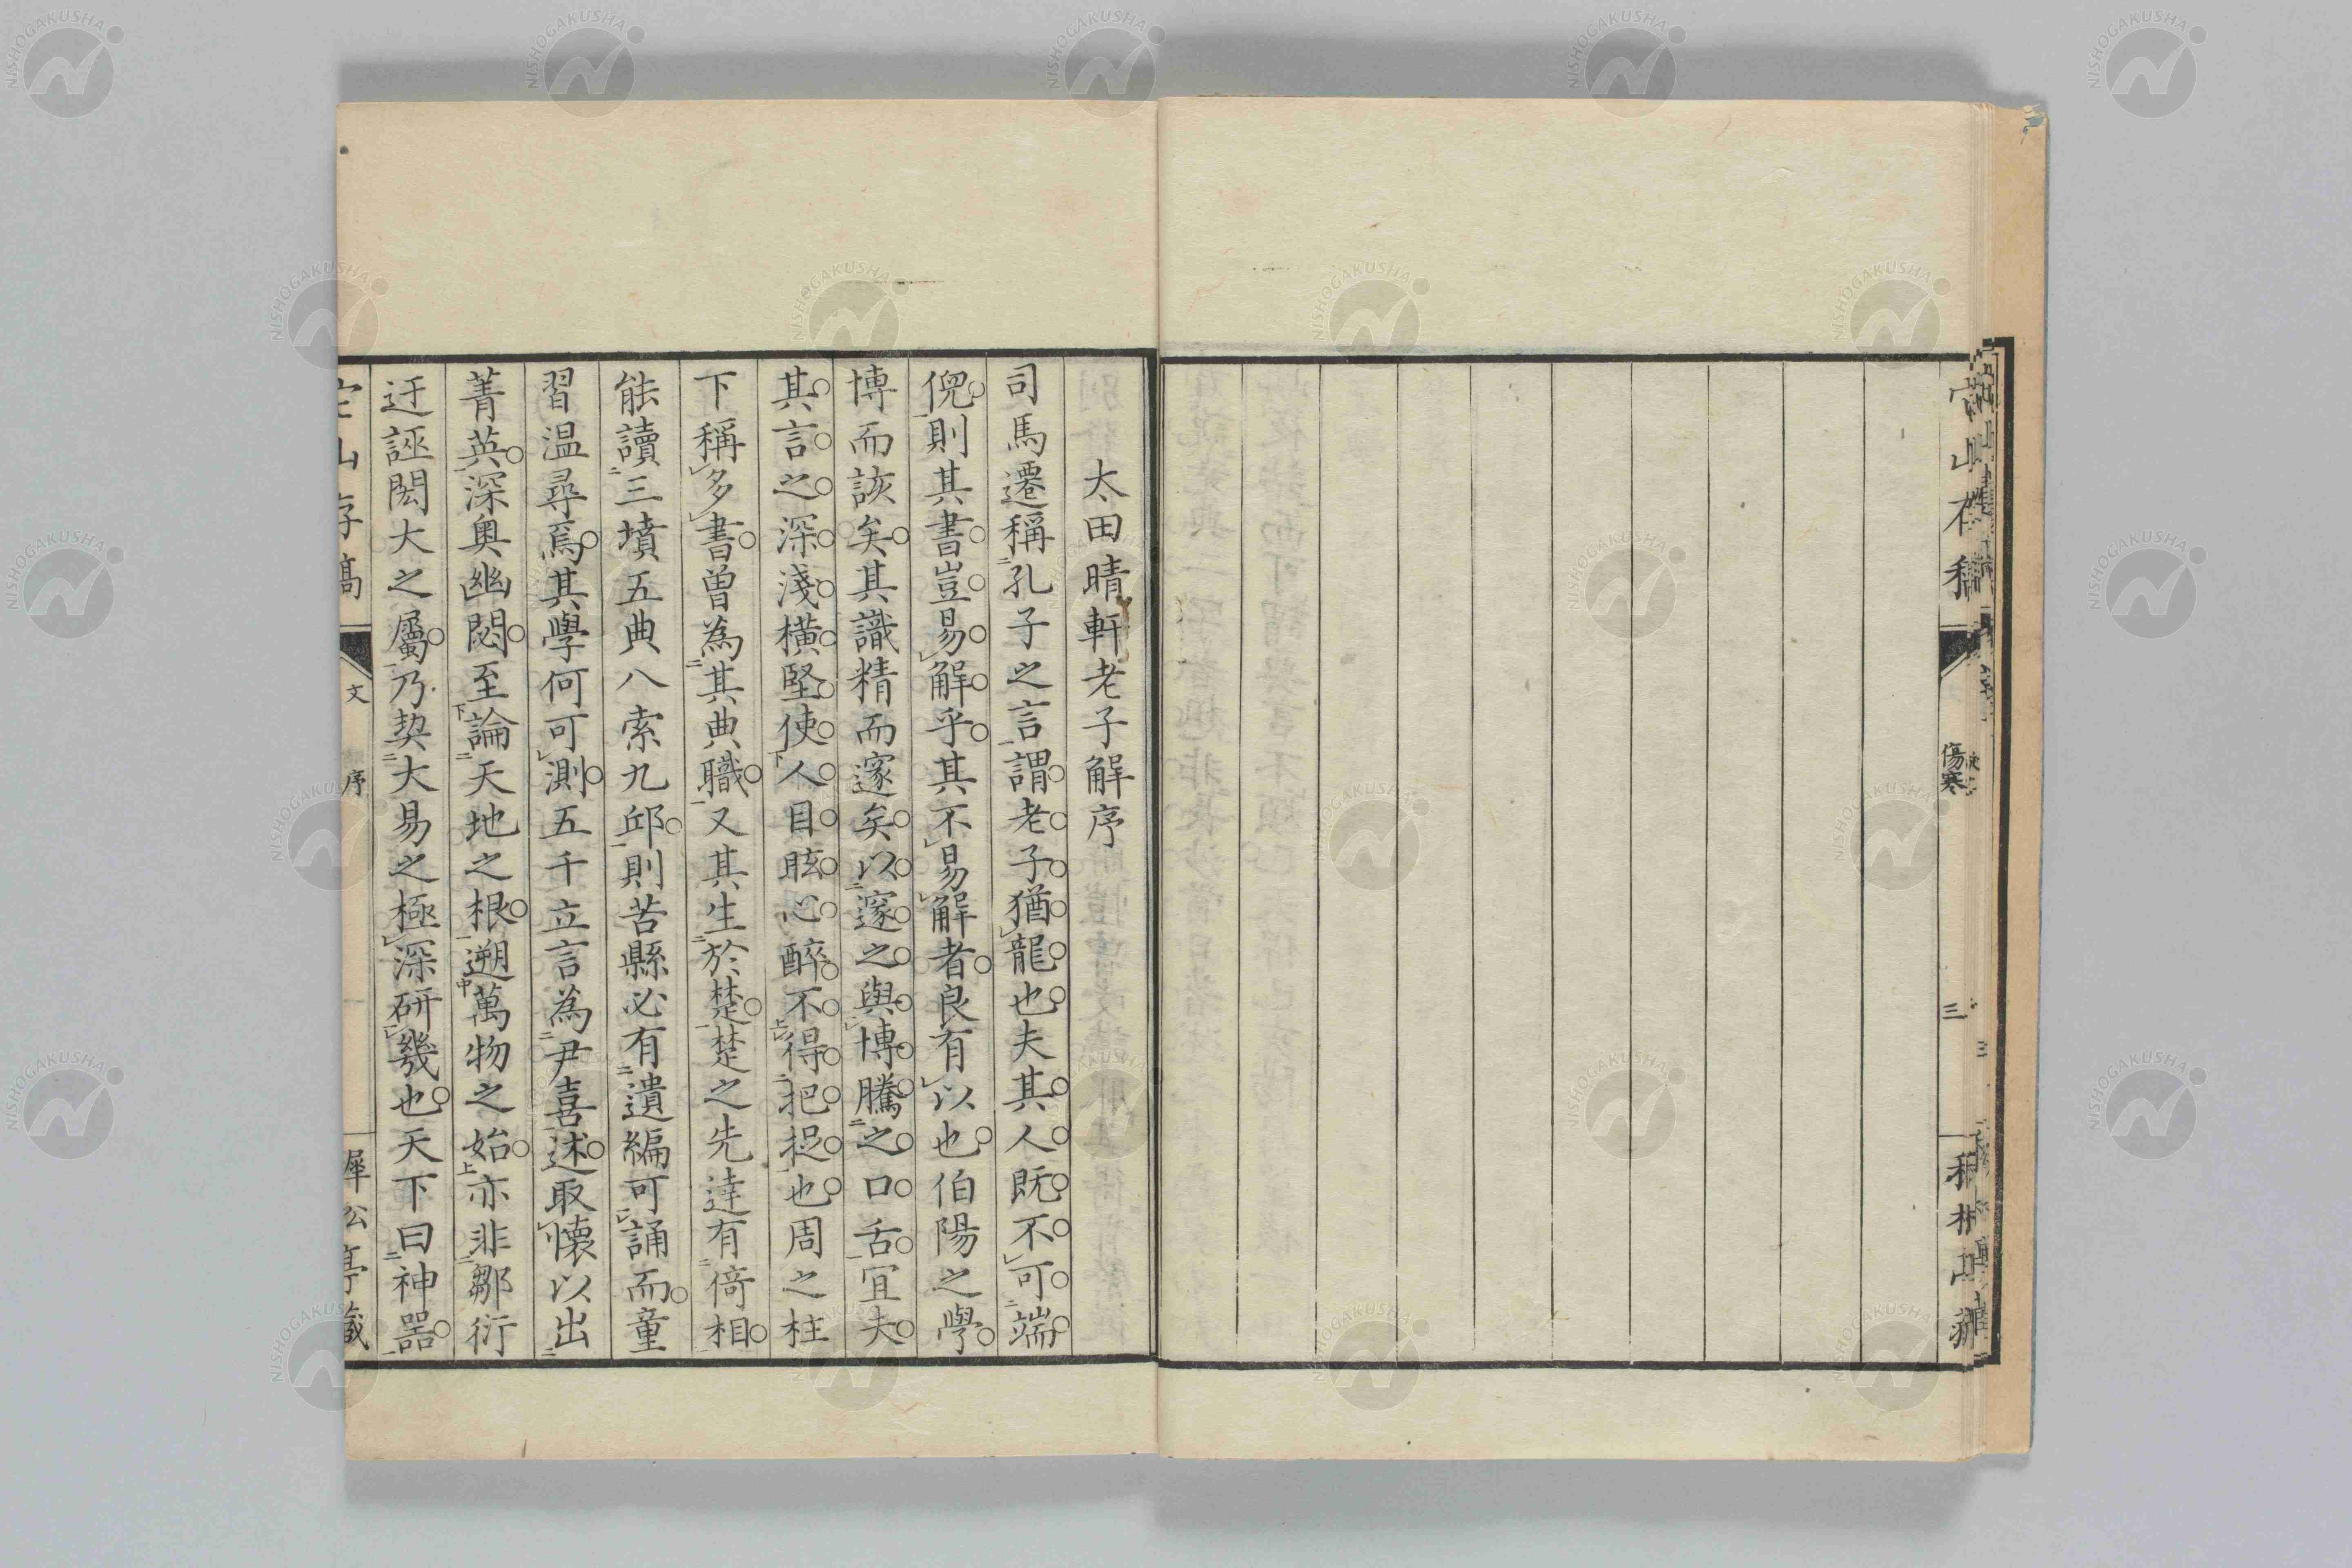 傷寒
三
太田晴軒老子解序
司馬遷稱孔子之言謂老子猶龍也夫其人既不可端
倪則其書豈易解乎其不易解者良有以也伯陽之學
博而該矣其識精而邃矣以邃之與博騰之口舌宜夫
其言之深淺橫堅使人目眩心醉不得把捉也周之柱
下稱多書曾為其典職又其生於楚楚之先達有倚相
能讀三墳五典八索九邱則苦縣必有遺編可誦而童
習温尋焉其學何可測五千立言為尹喜述取懷以出
菁英深奥幽閟至論天地之根遡萬物之始亦非鄒衍
迂誣閎大之屬乃契大易之極深研幾也天下曰神器
文 序
NISHOGAKUSHA